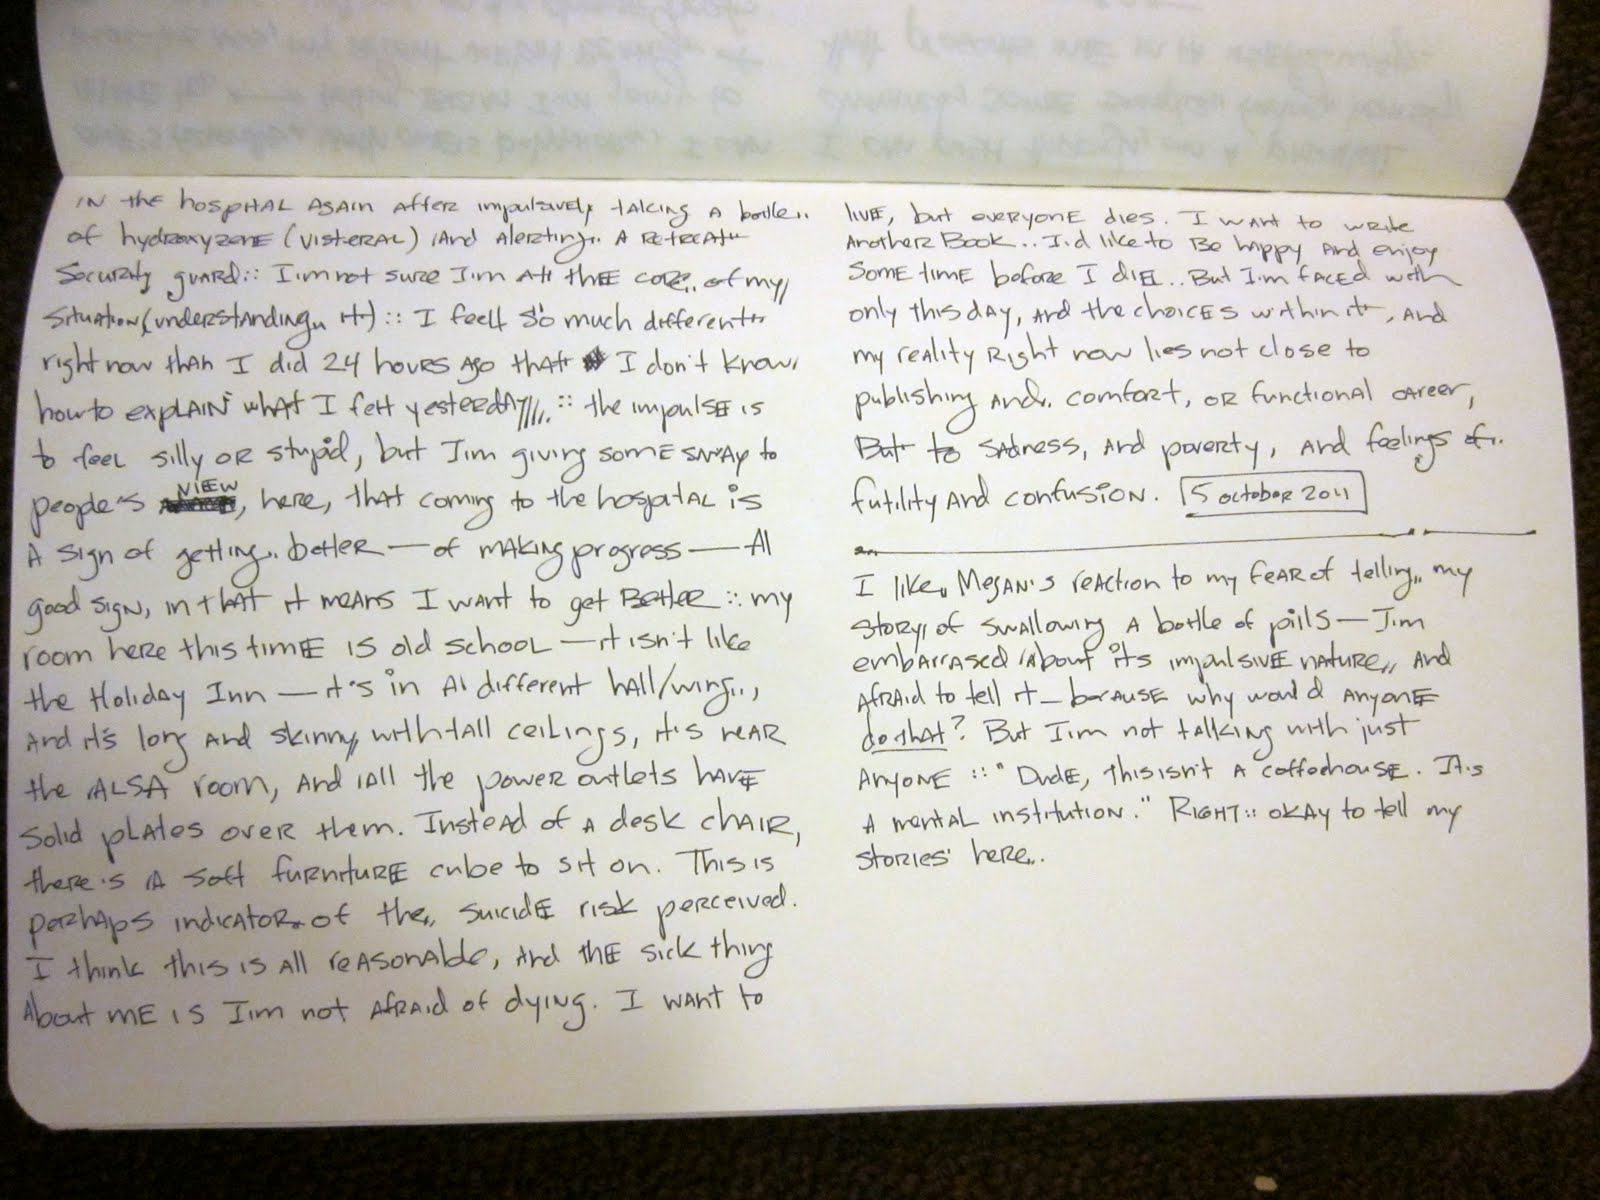 IN the hospital again after impulsively taking a bottle..
of hydroxyzene (visteral) and alerting.. a retreat
security guard:: I'm not sure I'm at the core.. of my
situation (understanding.. it) :: I feel so much different
right now than I did 24 hours ago that I don't know,
how to explain what I felt yesterday////.. :: the impulse is
to feel silly or stupid, but I'm giving some sway to
people's VIEW, here, that coming to the hospital is
a sign of getting.. better — of making progress — A
good sign, in that it means I want to get better :: my
room here this time is old school — it isn't like
the Holiday Inn — it's in a different hall/wing..,
and it's long and skinny, with tall ceilings, it's near
the ALSA room, and all the power outlets have
solid plates over them. Instead of a desk chair,
there's a soft furniture cube to sit on. This is
perhaps indicator.. of the.. suicide risk perceived.
I think this is all reasonable, and the sick thing
about me is I'm not afraid of dying. I want to
live, but everyone dies. I want to write
another book.. I'd like to be happy and enjoy
some time before I die.. But I'm faced with
only this day, and the choices within it, and
my reality right now lies not close to
publishing and.. comfort, or functional career,
But to sadness, and poverty, and feelings of..
futility and confusion. 5 october 2011
I like.. Megan's reaction to my fear of telling.. my
story, of swallowing a bottle of pills — I'm
embarrased about its impulsive nature,, and
afraid to tell it — because why would anyone
do that? But I'm not talking with just
anyone :: "Dude, this isn't a coffeehouse. It's
a mental institution." Right:: okay to tell my
stories here..